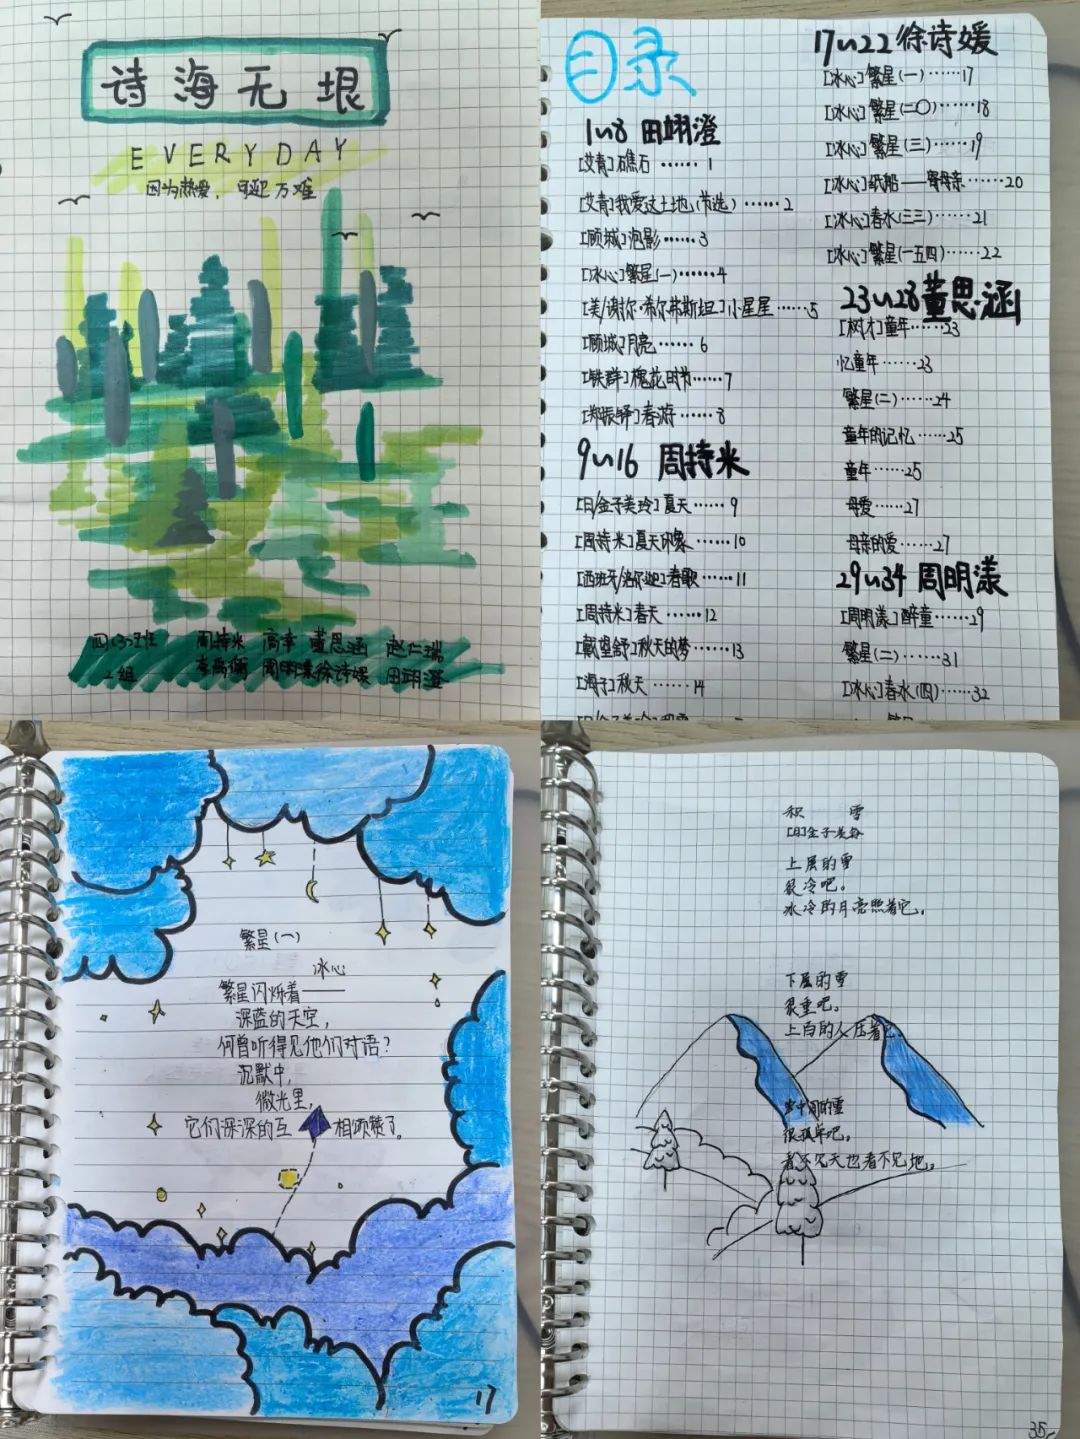 诗海无垠
EVERYDAY
因为热爱，可迎万难
四(3)班 周持米 高幸 董思涵
2组 周明漾 徐诗媛 田翊澄
目录
1~8 田翊澄
[艾青]礁石……1
[艾青]我爱这土地(节选)……2
[顾城]泡影……3
[冰心]繁星(一)……4
[美/谢尔·希尔弗斯坦]小星星……5
[顾城]月亮……6
[铁群]槐花时节……7
[郑振铎]春游……8
9~16 周持米
[日/金子美玲]夏天……9
[周持米]夏天印象……10
[西班牙/洛尔迦]春歌……11
[周持米]春天……12
[戴望舒]秋天的梦……13
[海子]秋天……14
17~22 徐诗媛
[冰心]繁星(一)……17
[冰心]繁星(二〇)……18
[冰心]繁星(三)……19
[冰心]纸船——寄母亲……20
[冰心]春水(三三)……21
[冰心]繁星(一五四)……22
23~28 董思涵
[树才]童年……23
忆童年……23
繁星(二)……24
童年的记忆……25
童年……25
母爱……27
母亲的爱……27
29~34 周明漾
[周明漾]醉童……29
繁星(二)……31
[冰心]春水(四)……32
繁星(一)
冰心
繁星闪烁着——
深蓝的天空，
何曾听得见他们对语？
沉默中，
微光里，
它们深深的互相颂赞了。
17
积 雪
[日]金子美
上层的雪
很冷吧。
冰冷的月亮照着它。
下层的雪
很重吧。
上百的人压着
中间的雪
很孤单吧。
看不见天也看不见地。
35